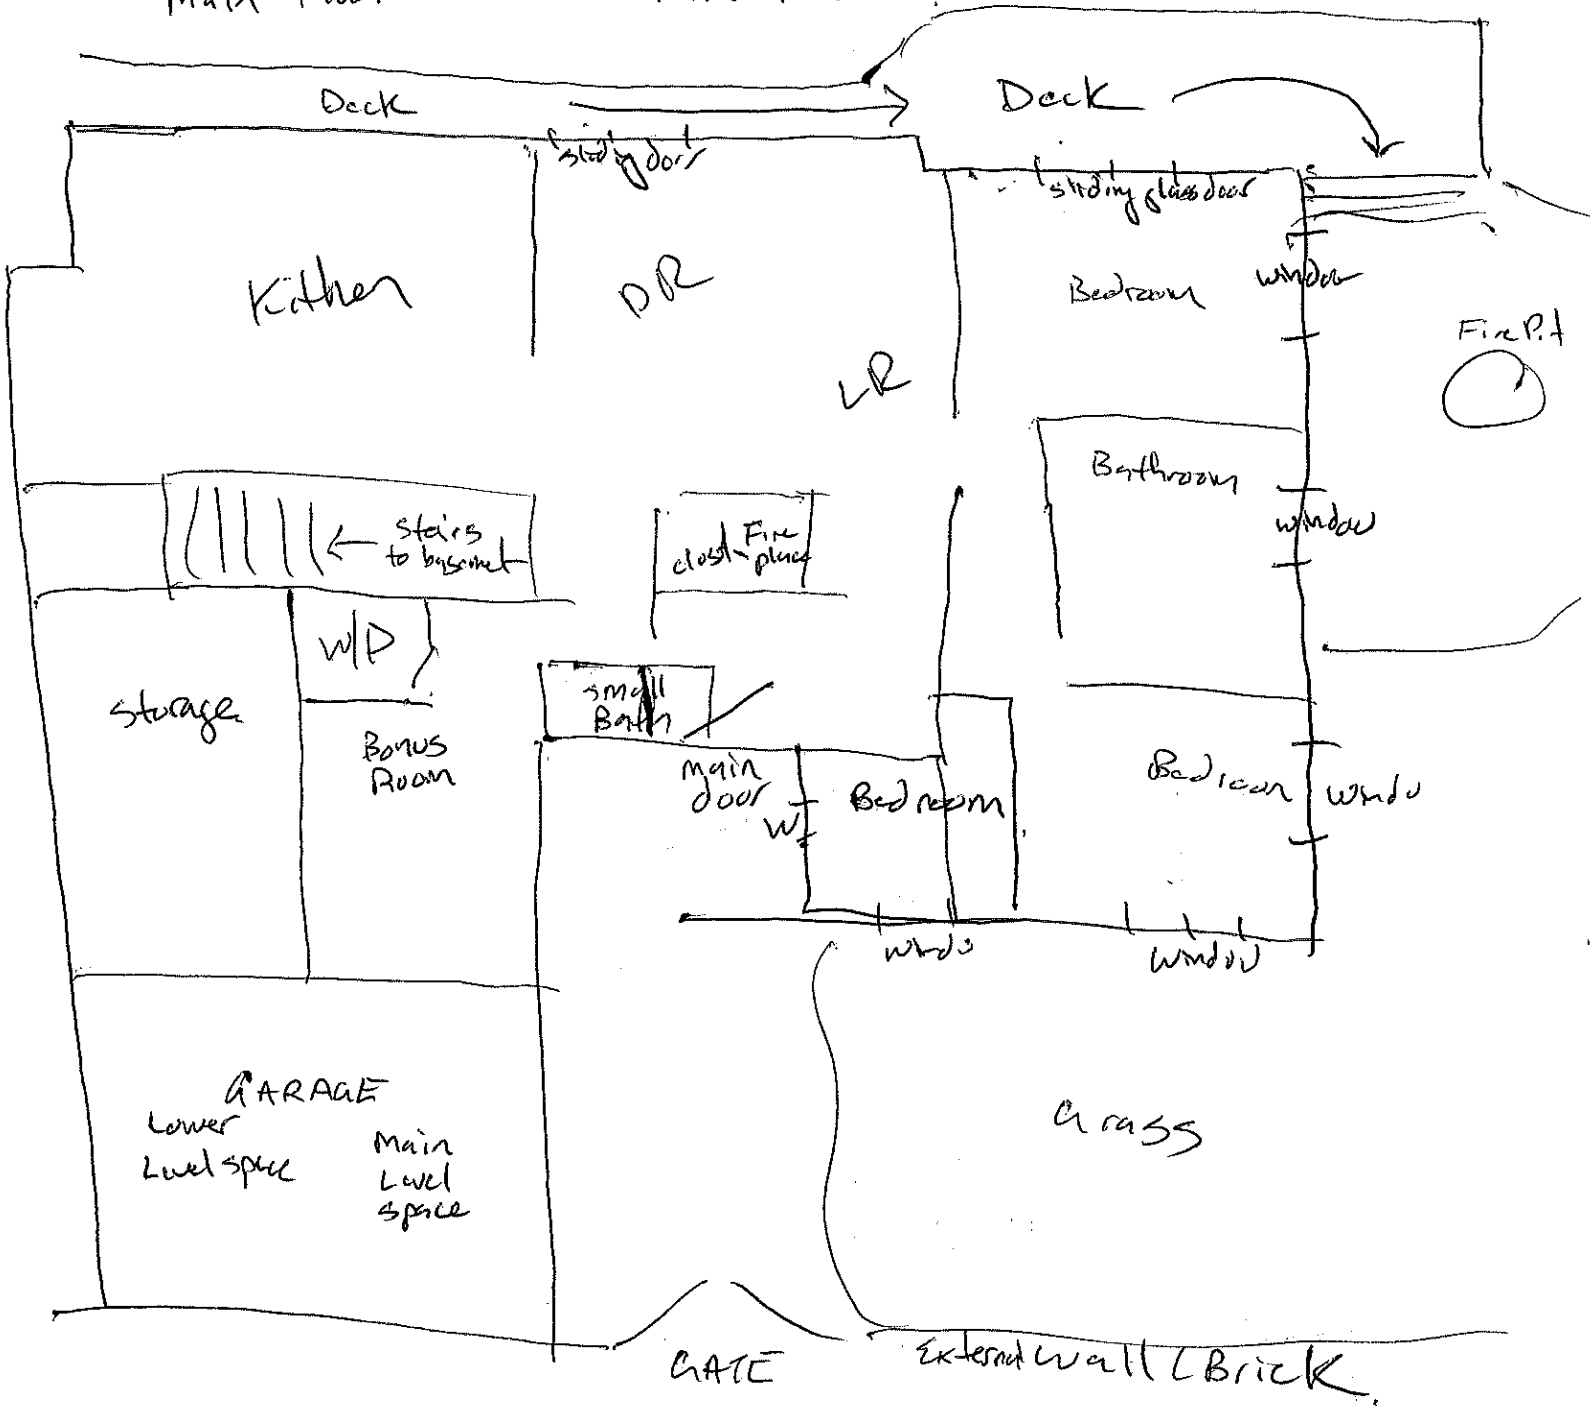 Main Floor
Deck
Deck
sliding door
sliding glass door
Kithen
DR
Bedroom
window
Fire Pit
LR
Bathroom
window
Stairs
to basemet
closet
Fire
place
W/D
Storage
small
Bath
Bonus
Room
main
door
W
Bedroom
Bedroom
Windo
windo
Window
GARAGE
Lower
Level space
Main
Level
space
Grass
GATE
External Wall (Brick